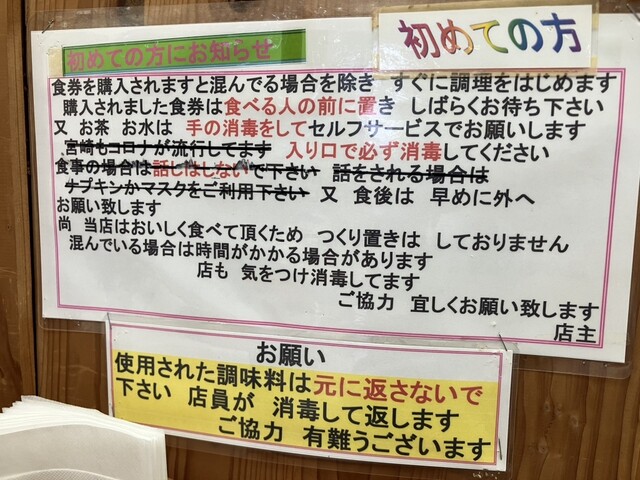 初めての方にお知らせ
初めての方
食券を購入されますと混んでる場合を除き すぐに調理をはじめます
購入されました食券は食べる人の前に置き しばらくお待ち下さい
又 お茶 お水は 手の消毒をしてセルフサービスでお願いします
宮崎もコロナが流行してます 入り口で必ず消毒してください
食事の場合は話しはしないで下さい 話をされる場合は
ナプキンかマスクをご利用下さい 又 食後は 早めに外へ
お願い致します
尚 当店はおいしく食べて頂くため つくり置きは しておりません
混んでいる場合は時間がかかる場合があります
店も 気をつけ消毒してます
ご協力 宜しくお願い致します
店主
お願い
使用された調味料は元に返さないで
下さい 店員が 消毒して返します
ご協力 有難うございます